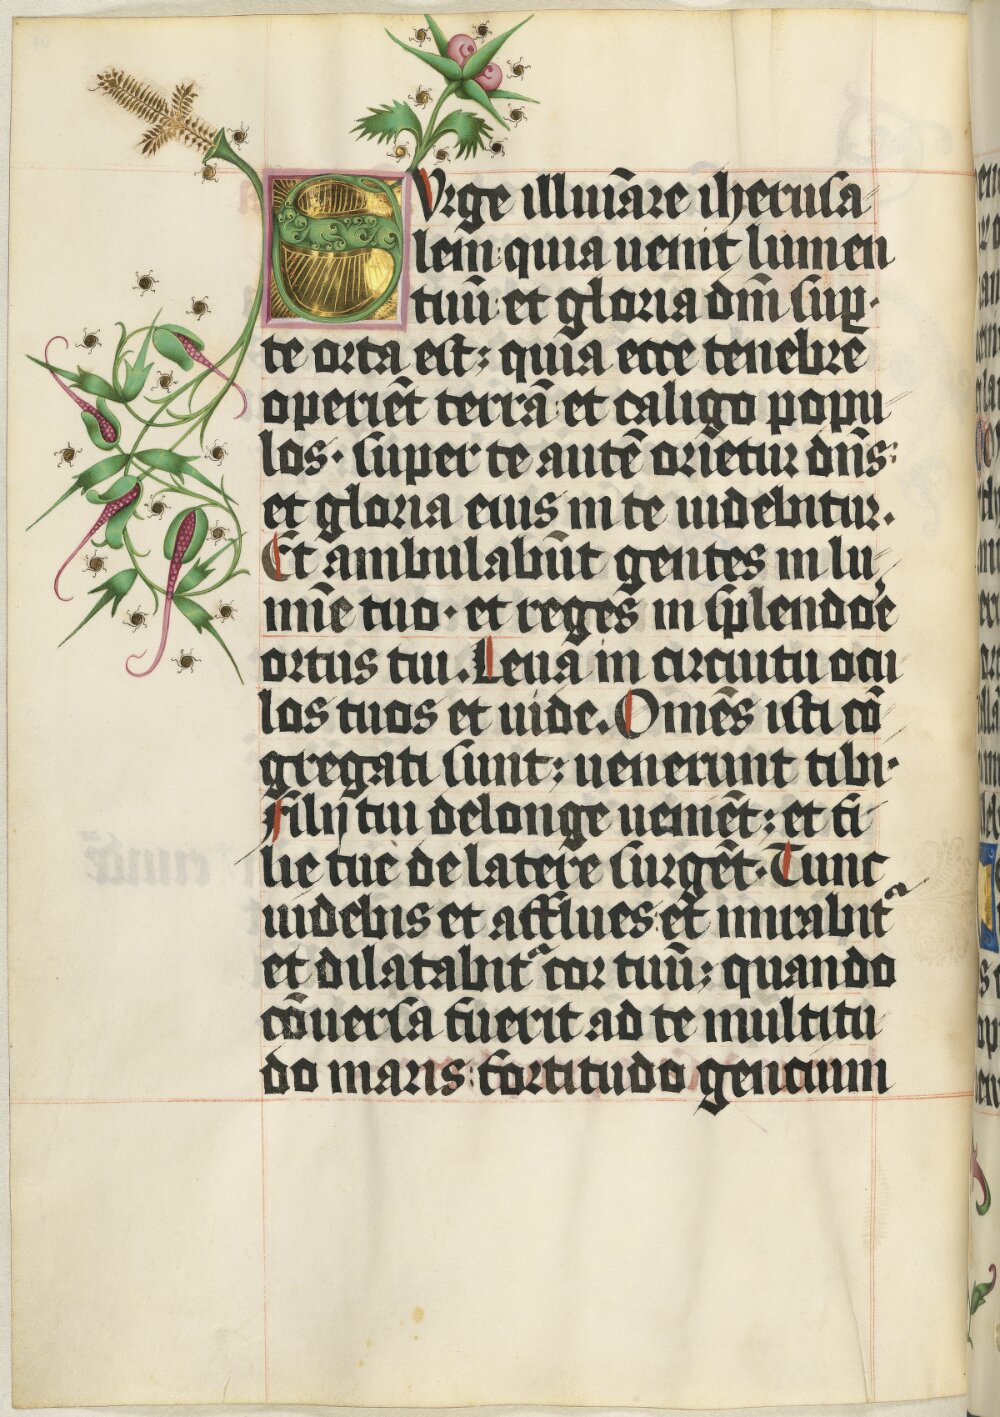 SVrge illumīare iherusa
lem: quia uenit lumen
tuū: et gloria dn̄i sup̱
te orta est; quia ecce tenebre
operiēt terrā: et caligo popu
los. super te autē orietur dn̄s:
et gloria eius in te uidebitur.
Et ambulabūt gentes in lu
mīe tuo. et reges in splendore
ortus tui. Leua in circuitu ocu
los tuos et uide. Omēs isti cō
gregati sunt; uenerunt tibi.
Filij tui de longe ueniēt; et fi
lie tue de latere surgēt. Tunc
uidebis et afflues: et mirabitᵃ
et dilatabitᵃ cor tuū; quando
cōuersa fuerit ad te multitu
do maris: fortitudo gentium